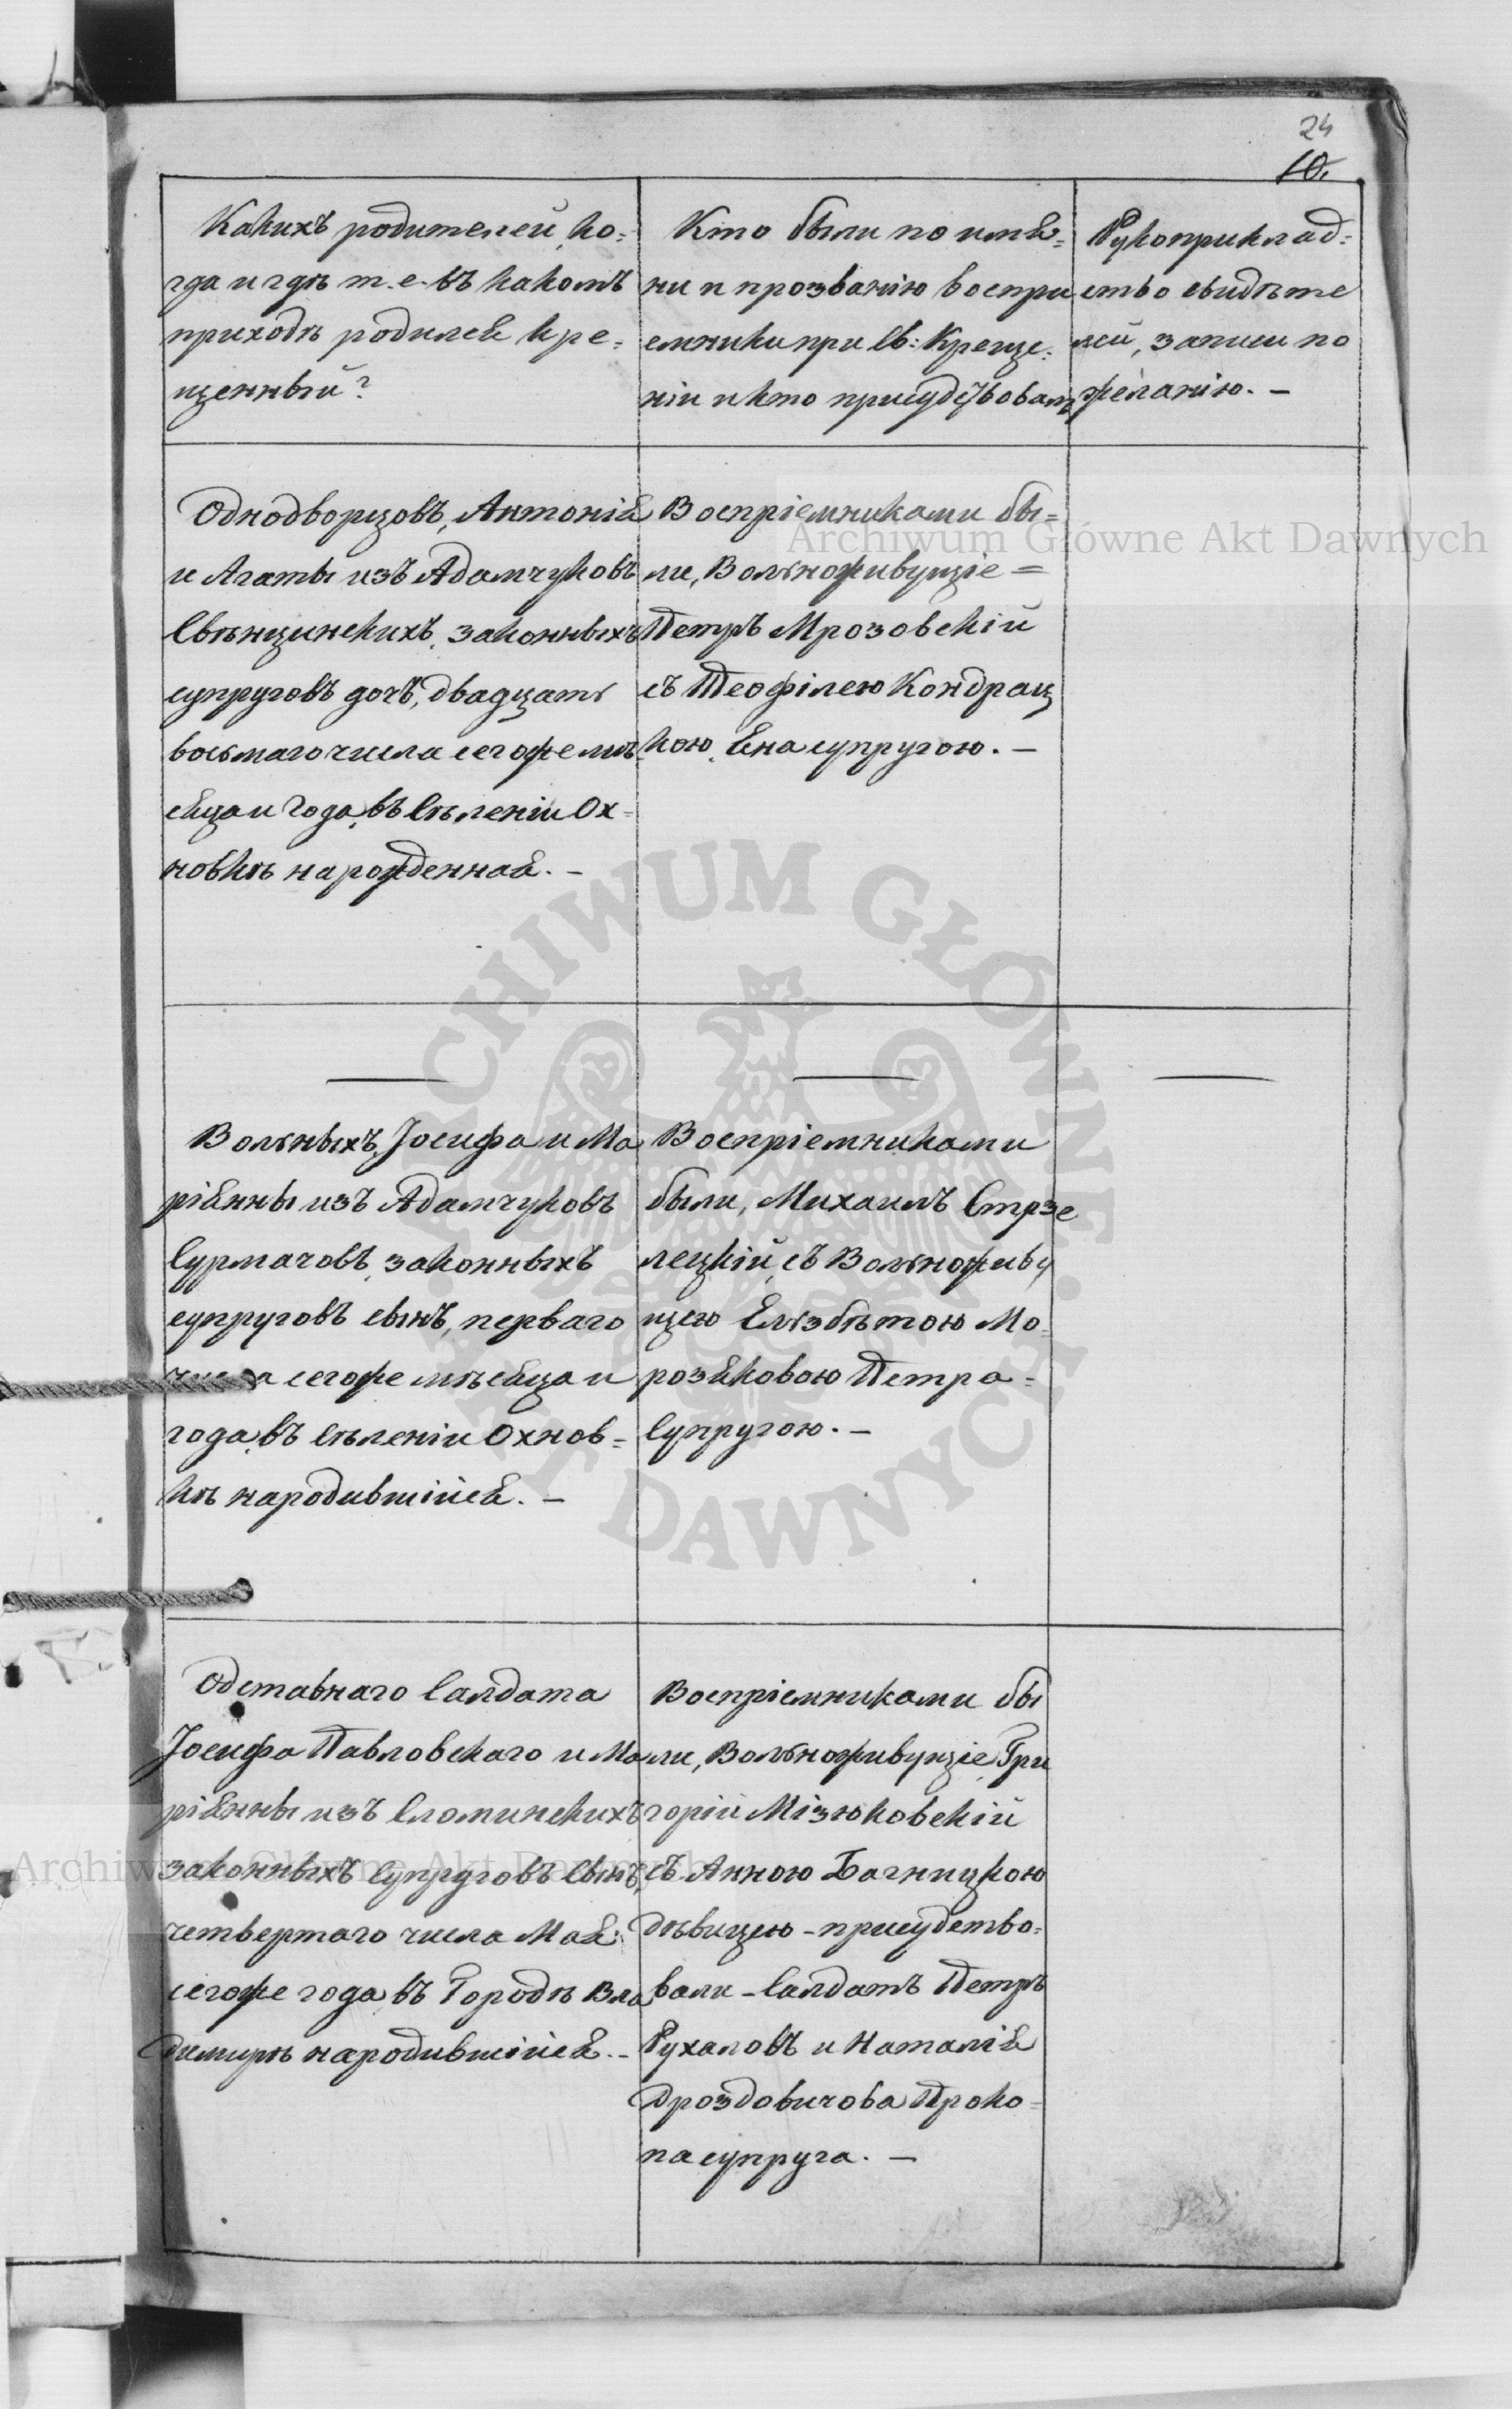 24
10.
Какихъ родителей, ко=
гда и гдѣ т.е. въ какомъ
приходѣ родился кре=
щенный?
Кто были по имя=
ни и прозванію воспри
емники при Св: Креще=
ніи и кто присудствовалъ
Рукоприклад=
ство свидѣте
лей, записи по
желанію. —
Однодворцовъ, Антонія
и Агаты изъ Адамчуковъ
Свѣнцинскихъ, законныхъ
супруговъ дочь, двадцать
восьмаго числа сегоже мѣ
сяца и года, въ Сѣленіи Ох=
новкѣ нарожденная. —
Воспріемниками бы=
ли, Вольноживущіе =
Петръ Мрозовскій
съ Теофілею Кондрац
кою, Яна супругою. —
Вольныхъ, Іосифа и Ма
ріянны изъ Адамчуковъ
Сурмачовъ, законныхъ
супруговъ сынъ, перваго
числа сегоже мѣсяца и
года, въ Сѣленіи Охнов=
кѣ народившійся. —
Воспріемниками
были, Михаилъ Стрзе
лецкій, съ Вольноживу
щею Елѣзбѣтою Мо=
розяковою Петра=
Супругою. —
Одставнаго Салдата
Іосифа Павловскаго и Ма
ріянны изъ Сломинскихъ
законныхъ Супруговъ Сынъ,
четвертаго числа Мая
сегоже года, въ Городѣ Вла
димирѣ народившійся. —
Воспріемниками бы
ли, Вольноживущіе, Гри
горій Мізюковскій
съ Анною Багницкою
дѣвицею — присудство=
вали — Салдатъ Петръ
Рухаловъ и Наталія
Дроздовичова Проко=
па супруга. —
Archiwum Główne Akt Dawnych
ARCHIWUM GŁÓWNE AKT DAWNYCH
Archiwum Główne Akt Dawnych